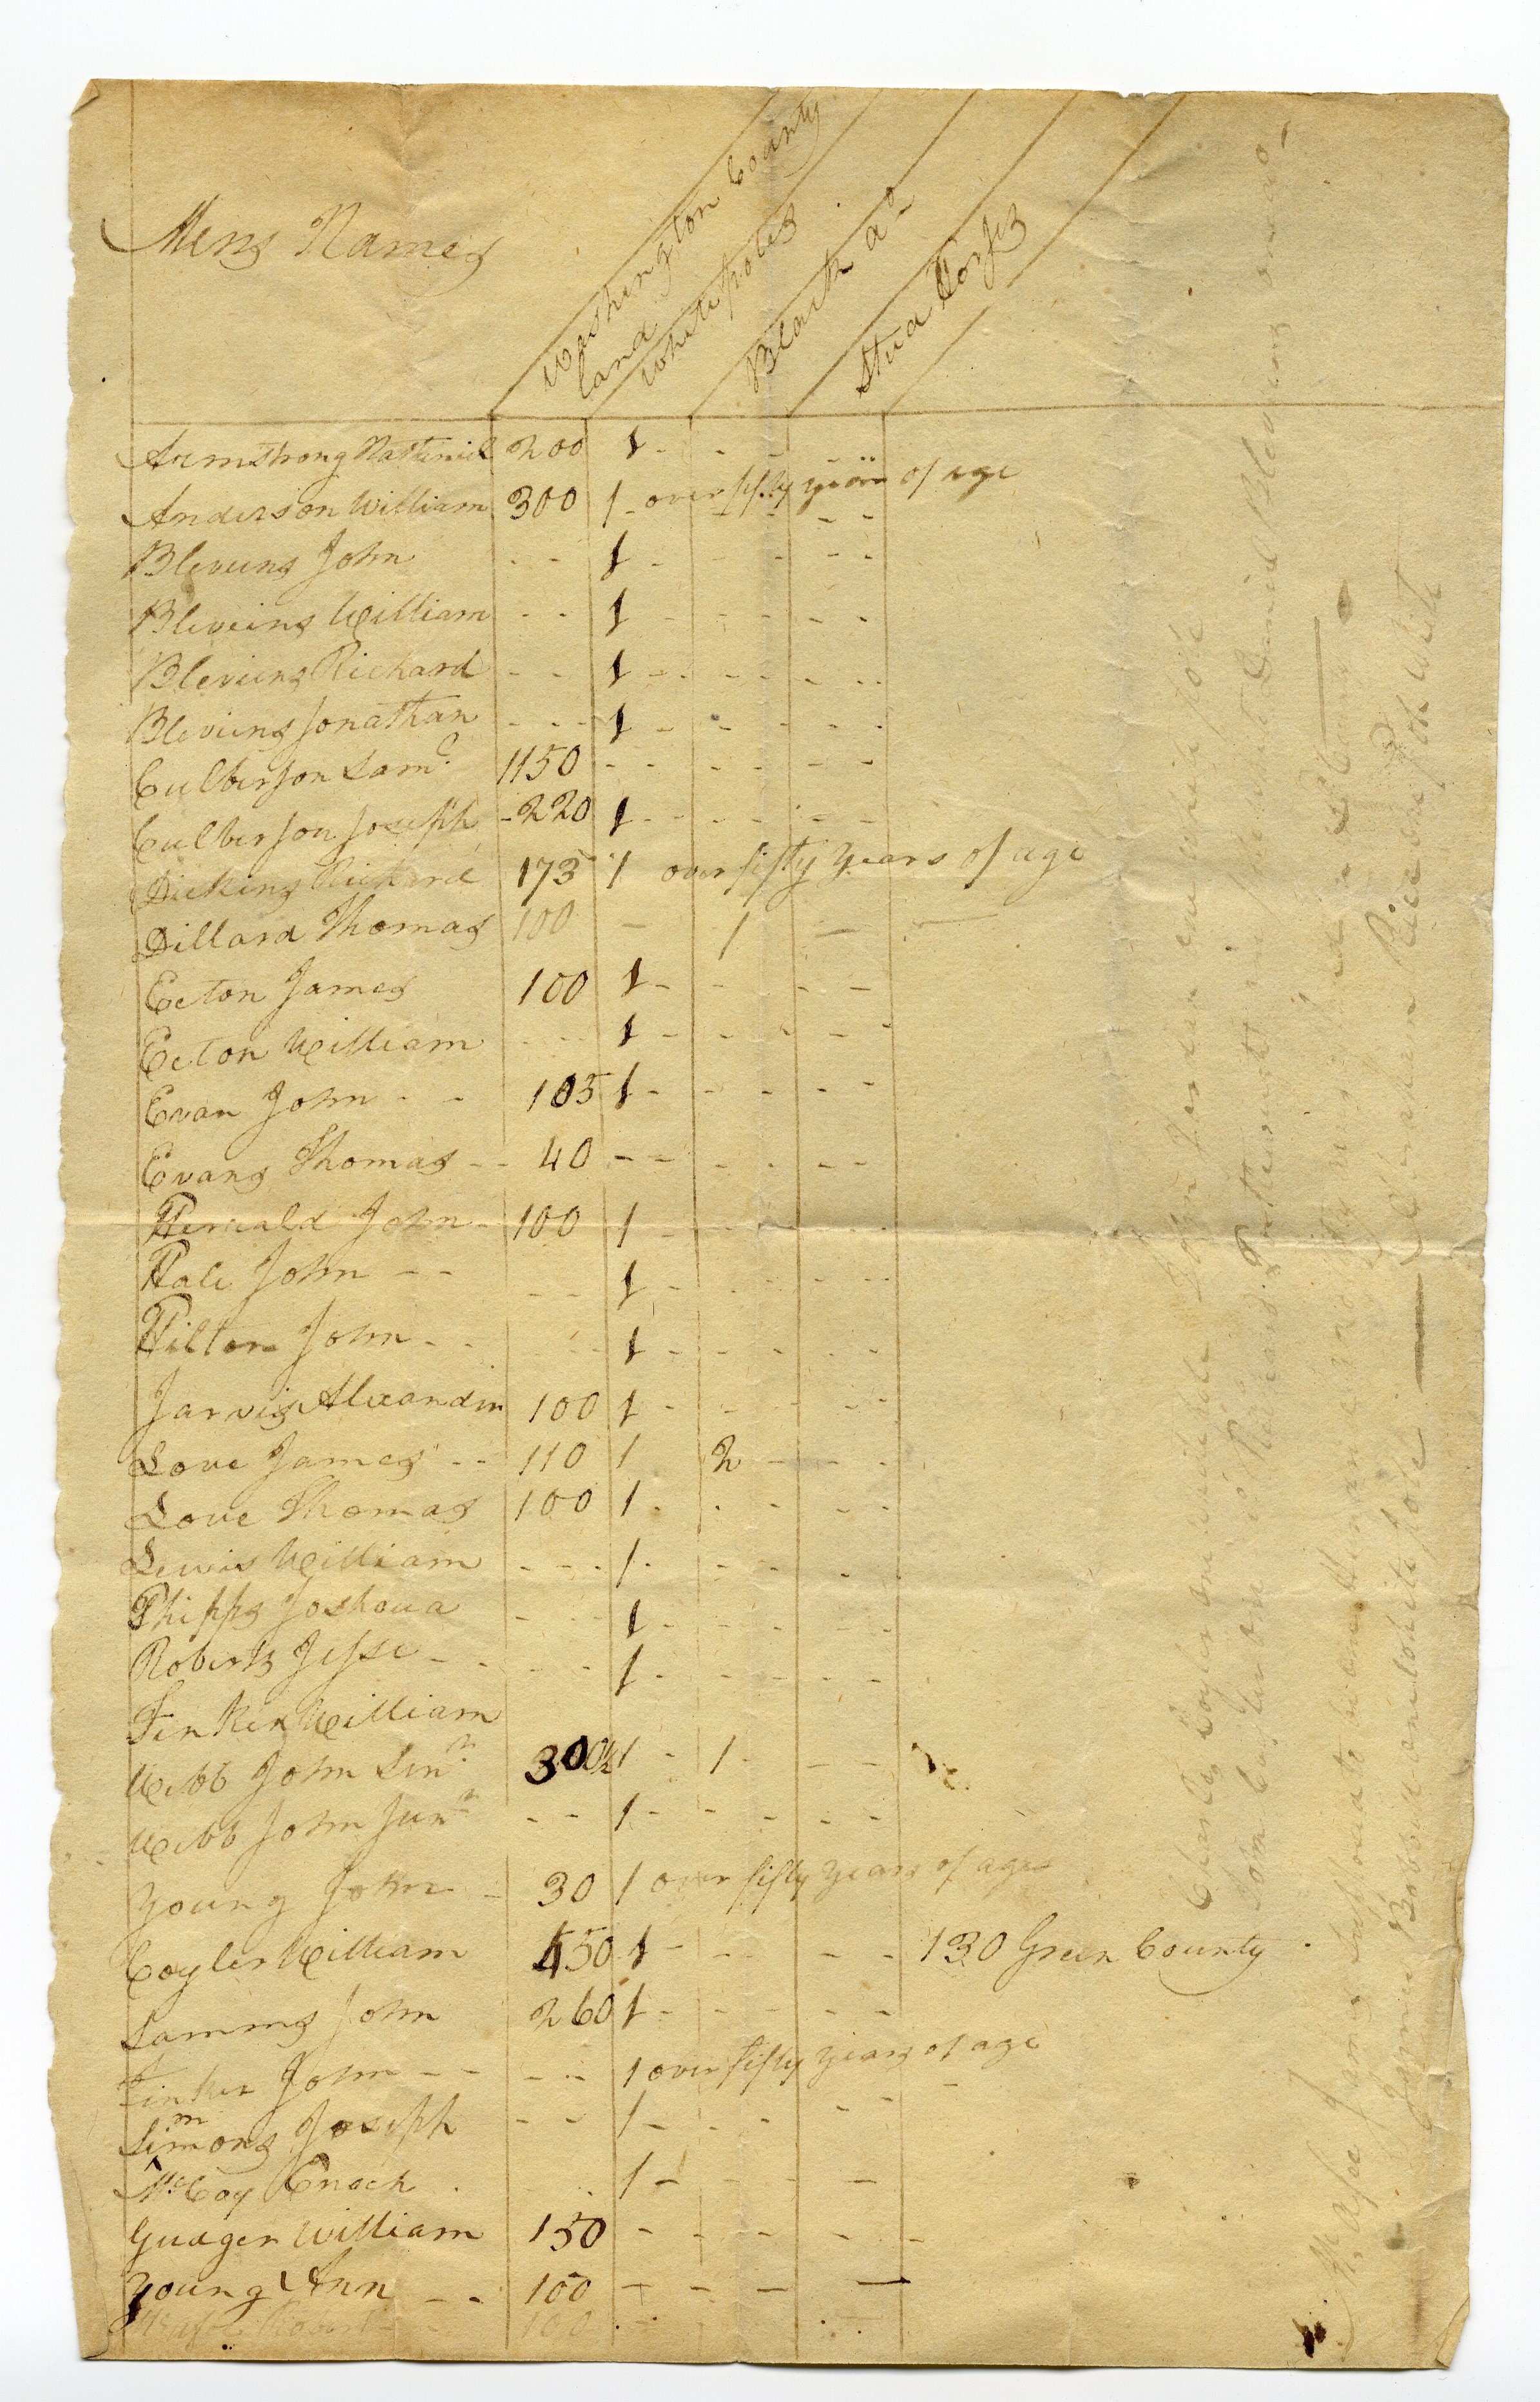 Mens Names
Washington County
Land
White poles
Black do
Stud Horses
Armstrong Nathaniel 200 1 - - - -
Anderson William 300 1 - over fifty years of age
Blevins John - - 1 - - - - -
Bleveins William - - 1 - - - - -
Blevins Richard - - 1 - - - - -
Blevins Jonathan - - - 1 - - - - -
Culberson Saml. 1150 - - - - - -
Culberson Joseph - 220 1 - - - - - -
Dickins Richard 173 1 over fifty years of age
Dillard Thomas 100 - 1 - -
Ecton James 100 1 - - - -
Ecton William - - - 1 - - - - -
Evan John - - 105 1 - - - - -
Evans Thomas - - 40 - - - - - -
Herrald John - 100 1 - - - - -
Hale John - - - - 1 - - - - -
Hilton John - - - - - 1 - - - - -
Jarvis Alexander 100 1 - - - - -
Love James - - 110 1 2 - - -
Love Thomas 100 1 - - - - -
Lewis William - - - 1 - - - - -
Phipps Joshoua - - - 1 - - - - -
Roberts Jesse - - - - 1 - - - - -
Tinker William
Webb John Senr 300 1 - 1 - - -
Webb John Junr - - 1 - - - - -
Young John - 30 1 over fifty years of age
Coyler William 450 1 - - - - 130 Green County
Samms John 260 1 - - - - -
Tinker John - - - - 1 over fifty years of age
Simmons Joseph - - 1 - - - - -
McCoy Enoch - - 1 - - - -
Guager William 150 - - - - - -
Young Ann - - 100 - - - -
Robert 100 - -
Charles Coyler one white pole John one white pole
John one Do Richard one white Daniel Blevins one Do
James to be one
James one white pole Rice one poll white